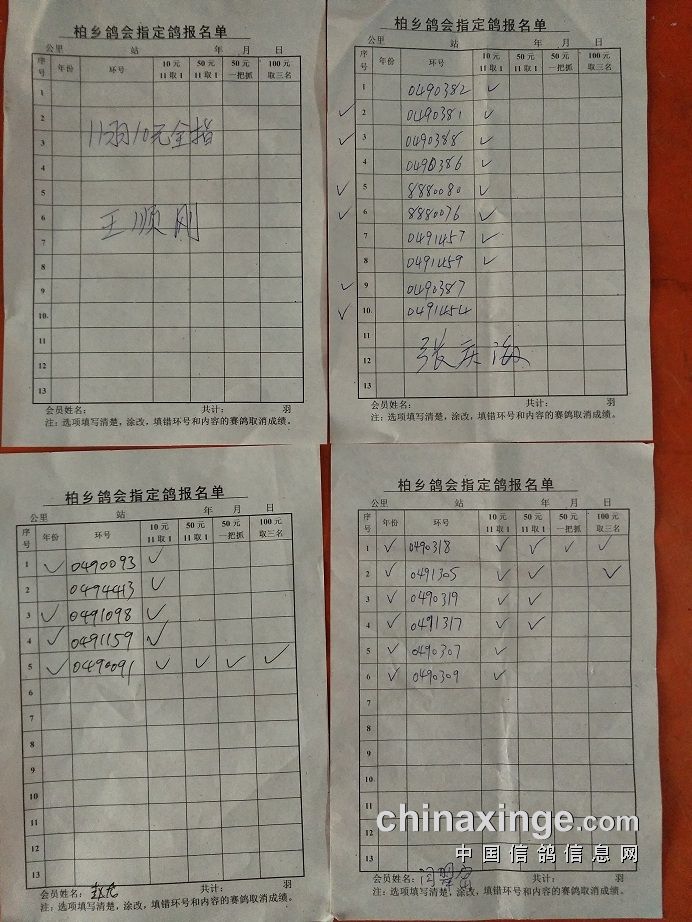 柏乡鸽会指定鸽报名单
公里 站 年 月 日
序号 年份 环号 10元 11取1 50元 11取1 50元 一把抓 100元 取三名
1
2
3 11羽10元全指
4
5
6 王顺刚
7
8
9
10
11
12
13
会员姓名: 共计: 羽
注:选项填写清楚,涂改,填错环号和内容的赛鸽取消成绩。
柏乡鸽会指定鸽报名单
公里 站 年 月 日
序号 年份 环号 10元 11取1 50元 11取1 50元 一把抓 100元 取三名
1 0490382 ✓
✓ 2 0490381 ✓
✓ 3 0490388 ✓
4 0490386 ✓
✓ 5 8880080 ✓
✓ 6 8880076 ✓
7 0491457 ✓
8 0491459 ✓
✓ 9 0490387
✓ 10 0491454
11
12 张庆海
13
会员姓名: 共计: 羽
注:选项填写清楚,涂改,填错环号和内容的赛鸽取消成绩。
柏乡鸽会指定鸽报名单
公里 站 年 月 日
序号 年份 环号 10元 11取1 50元 11取1 50元 一把抓 100元 取三名
1 ✓ 0490093 ✓
2 0494413 ✓
3 ✓ 0491098 ✓
4 ✓ 0491159 ✓
5 ✓ 0490091 ✓ ✓ ✓ ✓
6
7
8
9
10
11
12
13
会员姓名: 赵龙 共计: 羽
注:选项填写清楚,涂改,填错环号和内容的赛鸽取消成绩。
柏乡鸽会指定鸽报名单
公里 站 年 月 日
序号 年份 环号 10元 11取1 50元 11取1 50元 一把抓 100元 取三名
1 ✓ 0490318 ✓ ✓ ✓ ✓
2 ✓ 0491305 ✓ ✓ ✓
3 ✓ 0490319 ✓ ✓
4 ✓ 0491317 ✓ ✓
5 ✓ 0490307 ✓
6 ✓ 0490309 ✓
7
8
9
10
11
12
13
会员姓名: 共计: 羽
注:选项填写清楚,涂改,填错环号和内容的赛鸽取消成绩。
chinaxinge.com
中国信鸽信息网